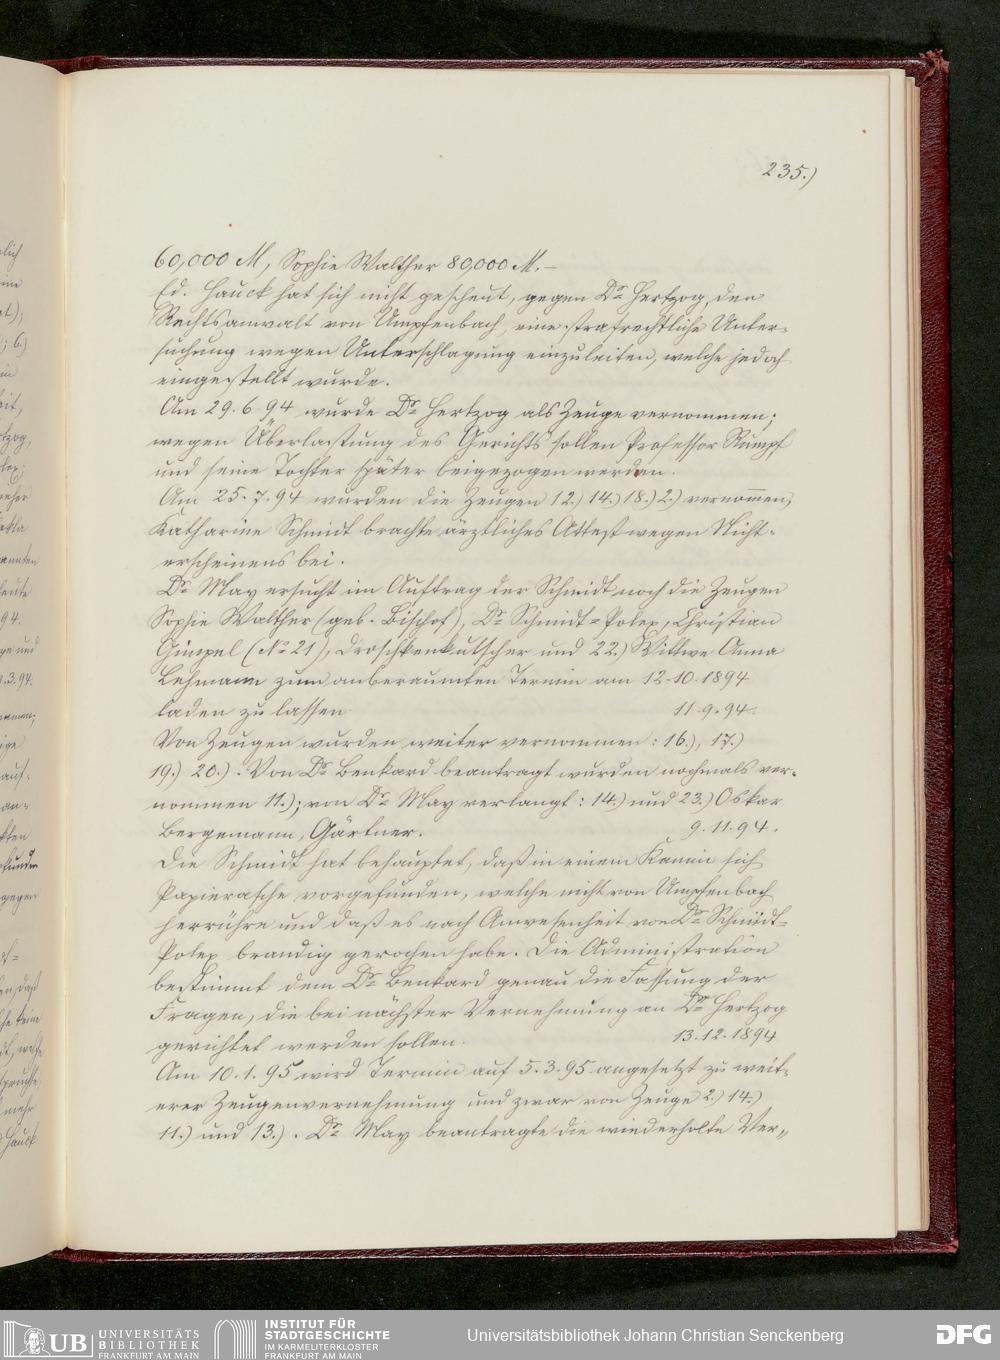 235.)
60,000 M, Sophie Walther 80,000 M.-
Ed. Hauck hat sich nicht gescheut, gegen Dr Hertzog, den
Rechtsanwalt von Umpfenbach, eine strafrechtliche Unter-
suchung wegen Unterschlagung einzuleiten, welche jedoch
eingestellt wurde.
Am 29. 6. 94 wurde Dr Hertzog als Zeuge vernommen;
wegen Überlastung des Gerichts sollen Professor Rumpf
und seine Tochter später beigezogen werden.
Am 25. 7. 94 wurden die Zeugen 12.) 14.) 18.) 2.) vernom̅en,
Katharine Schmidt brachte ärztliches Attest wegen Nicht-
erscheinens bei.
Dr May ersucht im Auftrag der Schmidt noch die Zeugen
Sophie Walther (geb. Bischof), Dr Schmidt=Polex, Christian
Gimpel (No 21), Droschkenkutscher und 22.) Wittwe Anna
Lehmann zum anberaumten Termin am 12. 10. 1894
laden zu lassen 11. 9. 94.
Von Zeugen wurden weiter vernommen: 16.), 17.)
19.) 20.). Von Dr Benkard beantragt wurden nochmals ver-
nommen 11.); von Dr May verlangt: 14.) und 23.) Oskar
Bergemann, Gärtner. 9. 11. 94.
Die Schmidt hat behauptet, daß in einem Kamin sich
Papierasche vorgefunden, welche nicht von Umpfenbach
herrühre und daß es nach Anwesenheit von Dr Schmidt-
Polex brandig gerochen habe. Die Administration
bestimmt dem Dr Benkard genau die Fassung der
Fragen, die bei nächster Vernehmung an Dr Hertzog
gerichtet werden sollen. 13. 12. 1894
Am 10. 1. 95 wird Termin auf 5. 3. 95 angesetzt zu weit-
erer Zeugenvernehmung und zwar von Zeuge 2.) 14.)
11.) und 13.). Dr May beantragte die wiederholte Ver-
UB UNIVERSITÄTS
BIBLIOTHEK
FRANKFURT AM MAIN
INSTITUT FÜR
STADTGESCHICHTE
IM KARMELITERKLOSTER
FRANKFURT AM MAIN
Universitätsbibliothek Johann Christian Senckenberg
DFG